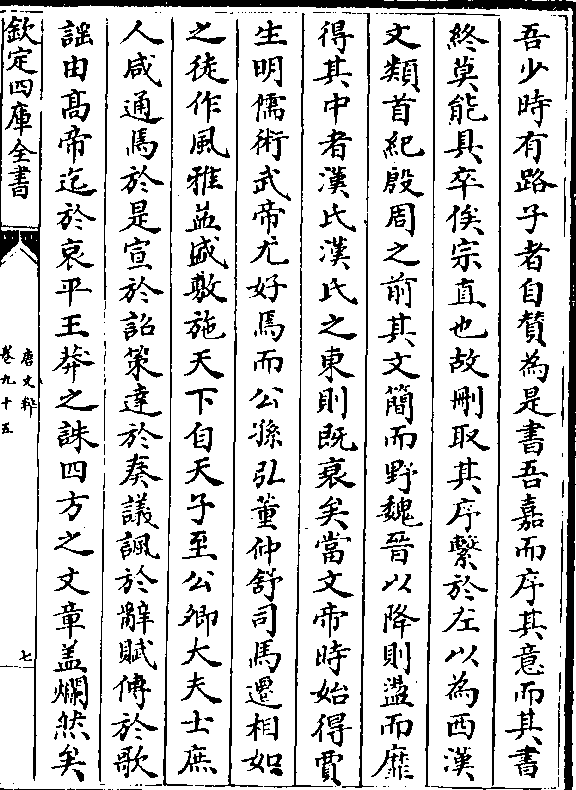 吾少時有路子者自贊為是書吾嘉而序其意而其書
終莫能具卒俟宗直也故刪取其序繫於左以為西漢
文類首紀殷周之前其文簡而野魏晉以降則盪而靡
得其中者漢氏漢氏之東則既衰矣當文帝時始得賈
生明儒術武帝尤好焉而公孫弘董仲舒司馬遷相如
之徒作風雅益盛敷施天下自天子至公卿大夫士庶
人咸通焉於是宣於詔策達於奏議諷於辭賦傳於歌
謡由髙帝迄於哀平王莽之誅四方之文章盖爛然矣
欽定四庫全書
唐文粹
卷九十五
七